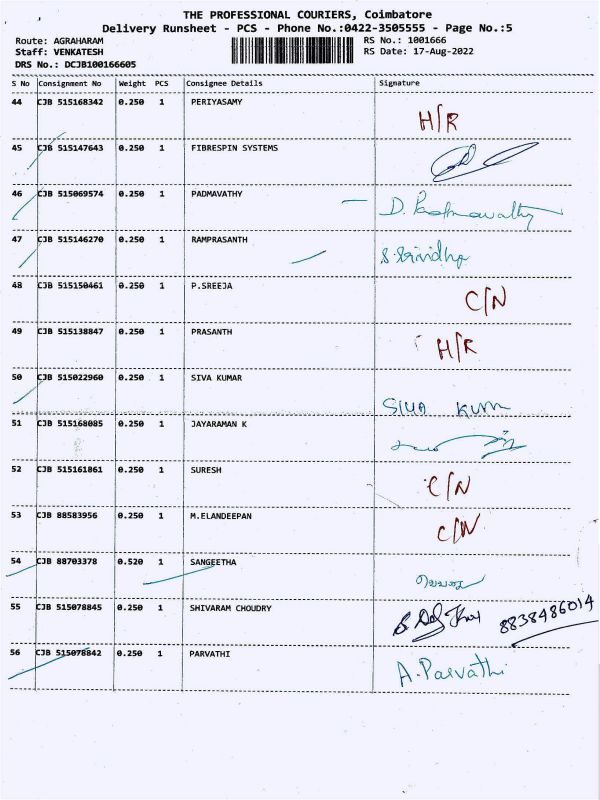 THE PROFESSIONAL COURIERS, Coimbatore
Delivery Runsheet - PCS - Phone No.:0422-3505555 - Page No.:5
Route: AGRAHARAM RS No.: 1001666
Staff: VENKATESH RS Date: 17-Aug-2022
DRS No.: DCJB100166605
S No Consignment No Weight PCS Consignee Details Signature
44 CJB 515168342 0.250 1 PERIYASAMY H/R
45 CJB 515147643 0.250 1 FIBRESPIN SYSTEMS
46 CJB 515069574 0.250 1 PADMAVATHY D. Padmavathy
47 CJB 515146270 0.250 1 RAMPRASANTH S. Srividhya
48 CJB 515150461 0.250 1 P.SREEJA C/N
49 CJB 515138847 0.250 1 PRASANTH H/R
50 CJB 515022960 0.250 1 SIVA KUMAR SIVA KUM
51 CJB 515168085 0.250 1 JAYARAMAN K
52 CJB 515161861 0.250 1 SURESH C/N
53 CJB 88583956 0.250 1 M.ELANDEEPAN C/N
54 CJB 88703378 0.520 1 SANGEETHA
55 CJB 515078845 0.250 1 SHIVARAM CHOUDRY 8838486014
56 CJB 515078842 0.250 1 PARVATHI A. Parvathi